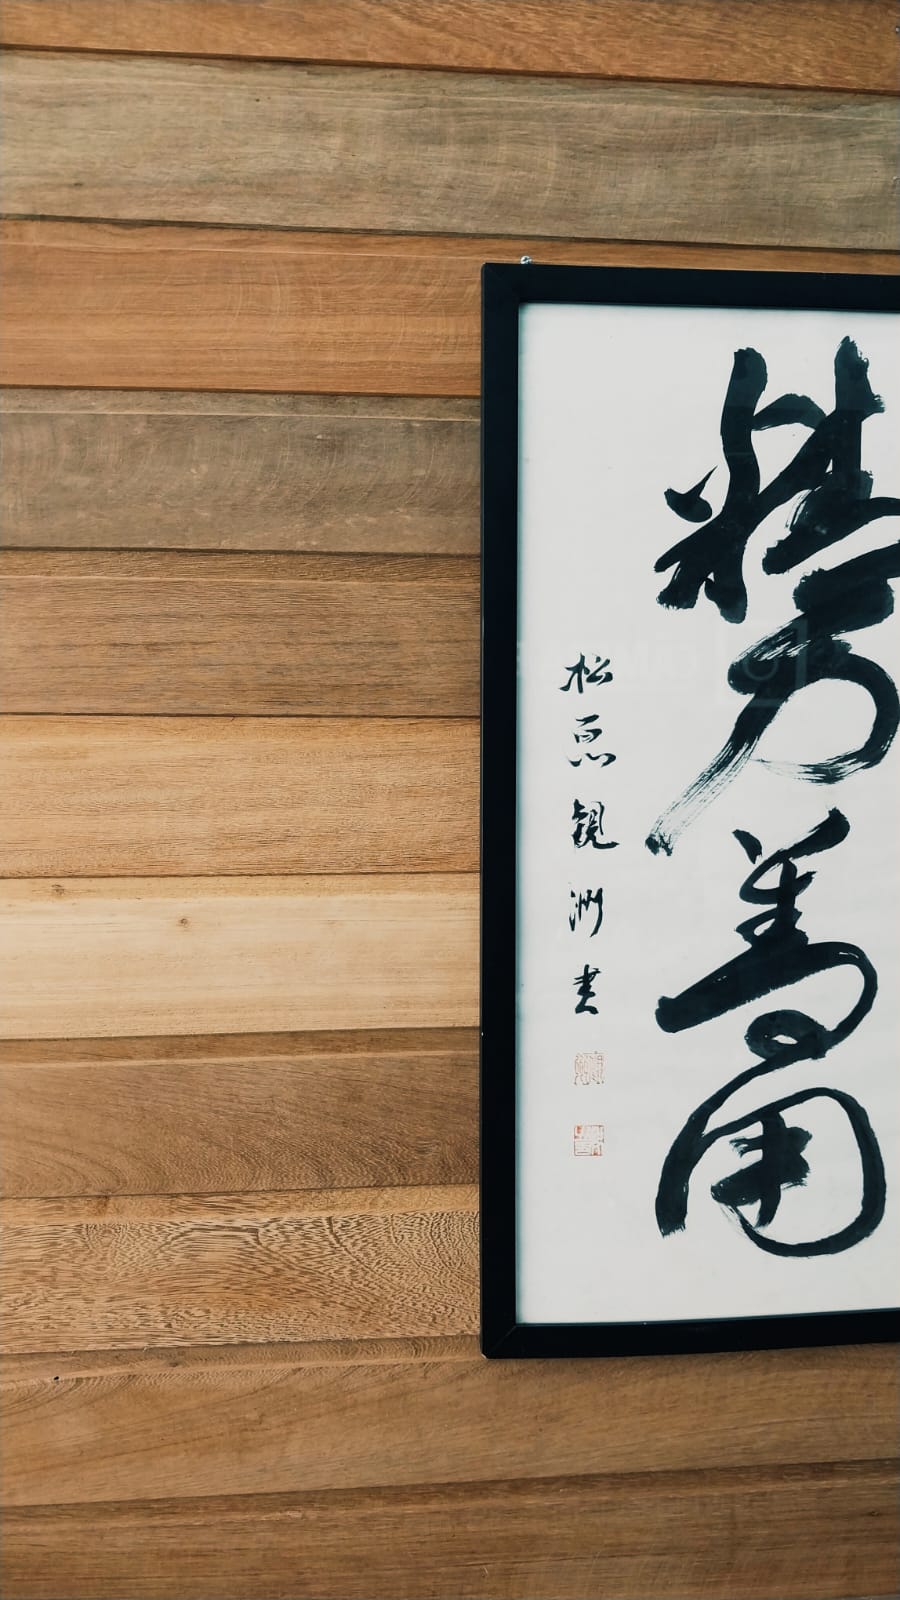 精力善用
松原観洲書